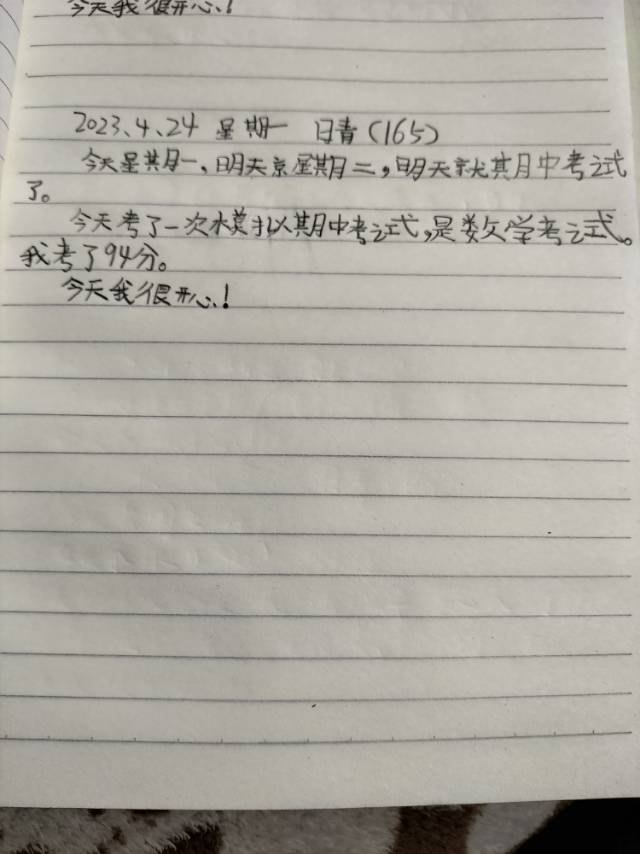 今天我很开心！
2023.4.24 星期一 日青（165）
今天星期一、明天京星期二，明天就期中考试
了。
今天考了一次模拟期中考试，是数学考试。
我考了94分。
今天我很开心！